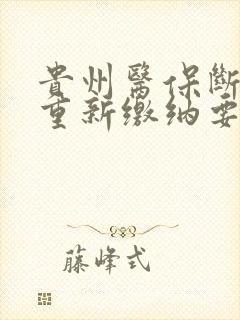 貴州醫保斷
重新繳纳要
藤峰式